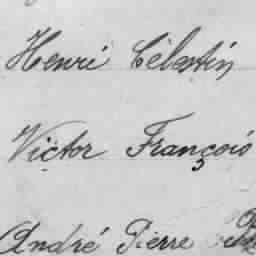 Henri Célestin
Victor François
André Pierre